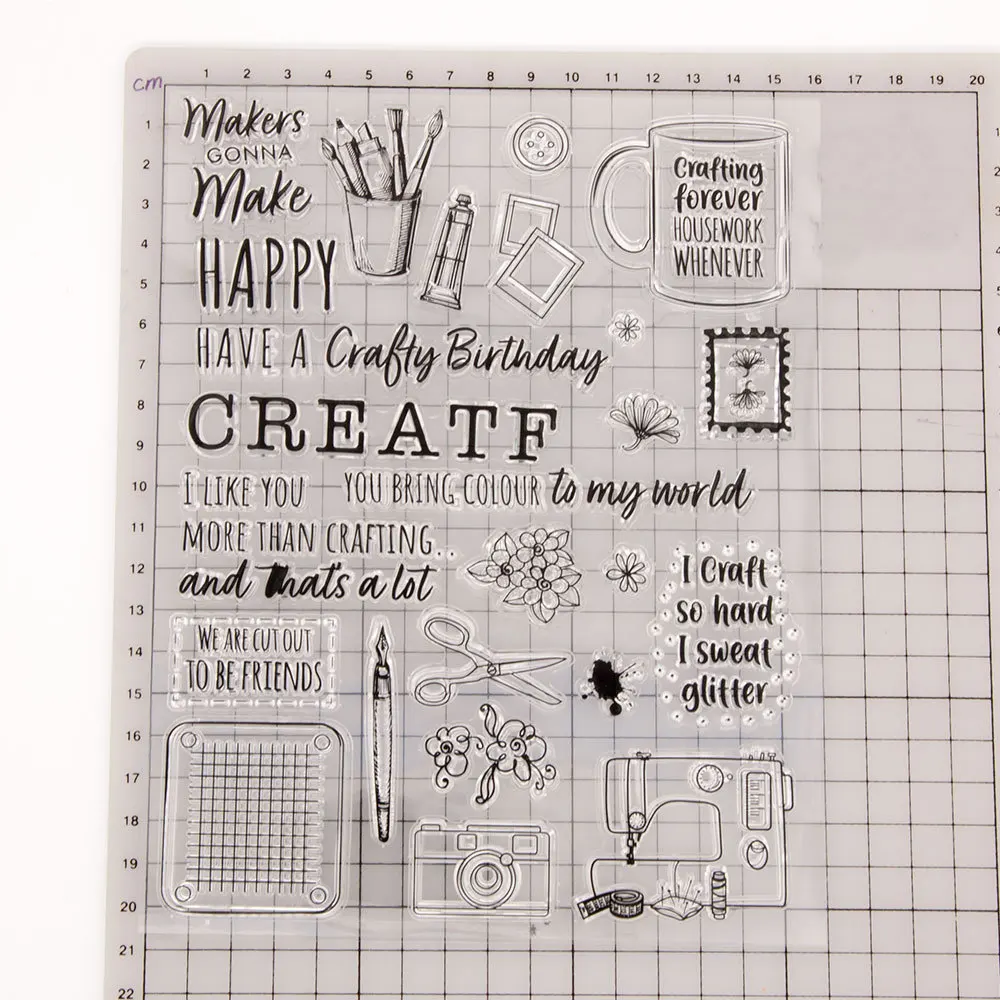 cm
1 2 3 4 5 6 7 8 9 10 11 12 13 14 15 16 17 18 19 20
1
2
3
4
5
6
7
8
9
10
11
12
13
14
15
16
17
18
19
20
21
22
Makers
GONNA
Make
HAPPY
HAVE A Crafty Birthday
CREATF
I LIKE YOU
MORE THAN CRAFTING..
and thats a lot
YOU BRING COLOUR to my world
Crafting
forever
HOUSEWORK
WHENEVER
I Craft
so hard
I sweat
glitter
WE ARE CUT OUT
TO BE FRIENDS